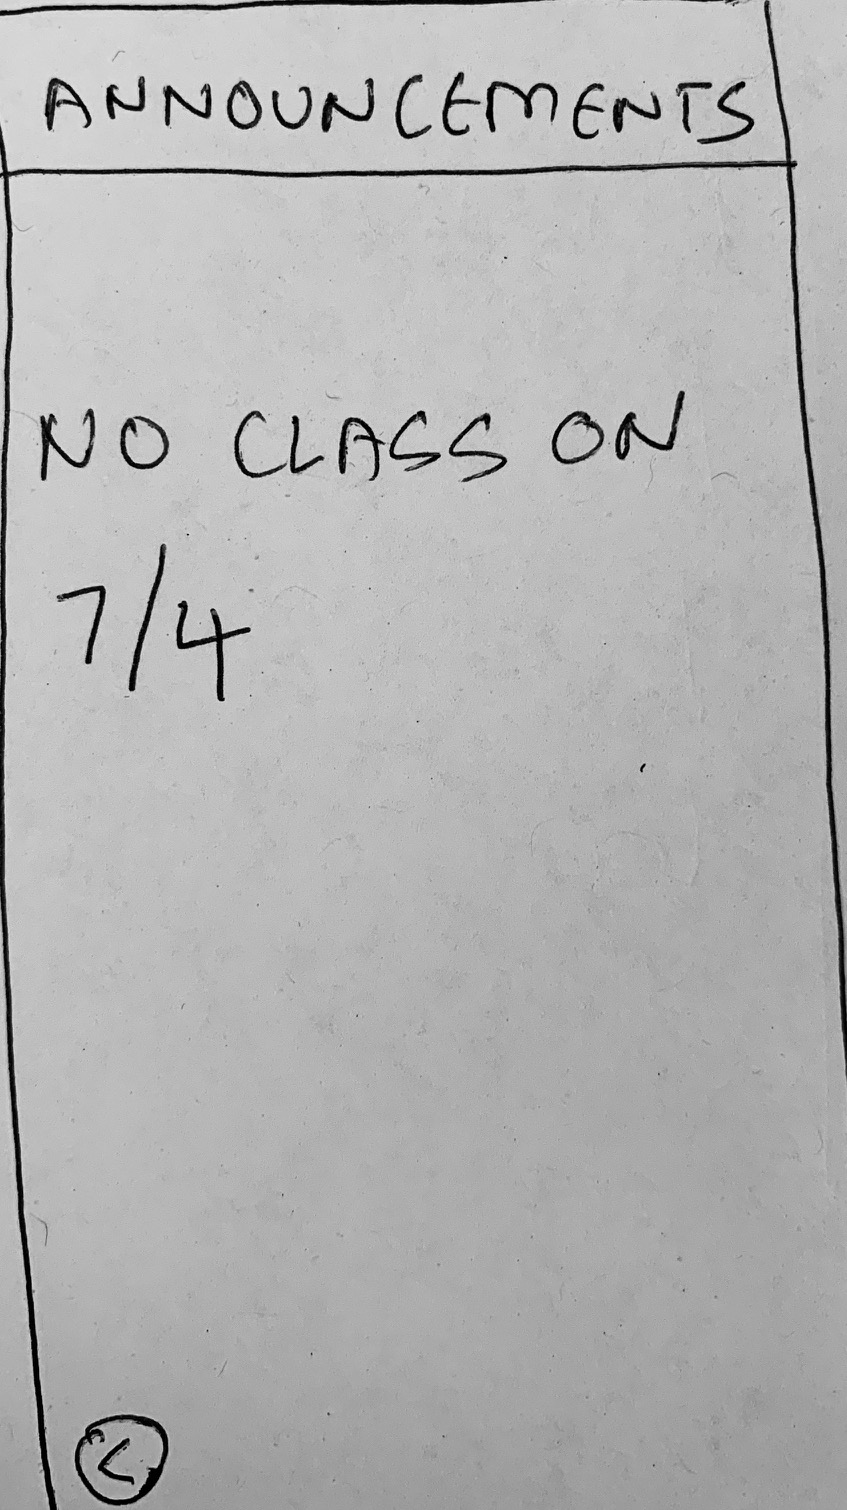 ANNOUNCEMENTS
NO CLASS ON
7/4
<